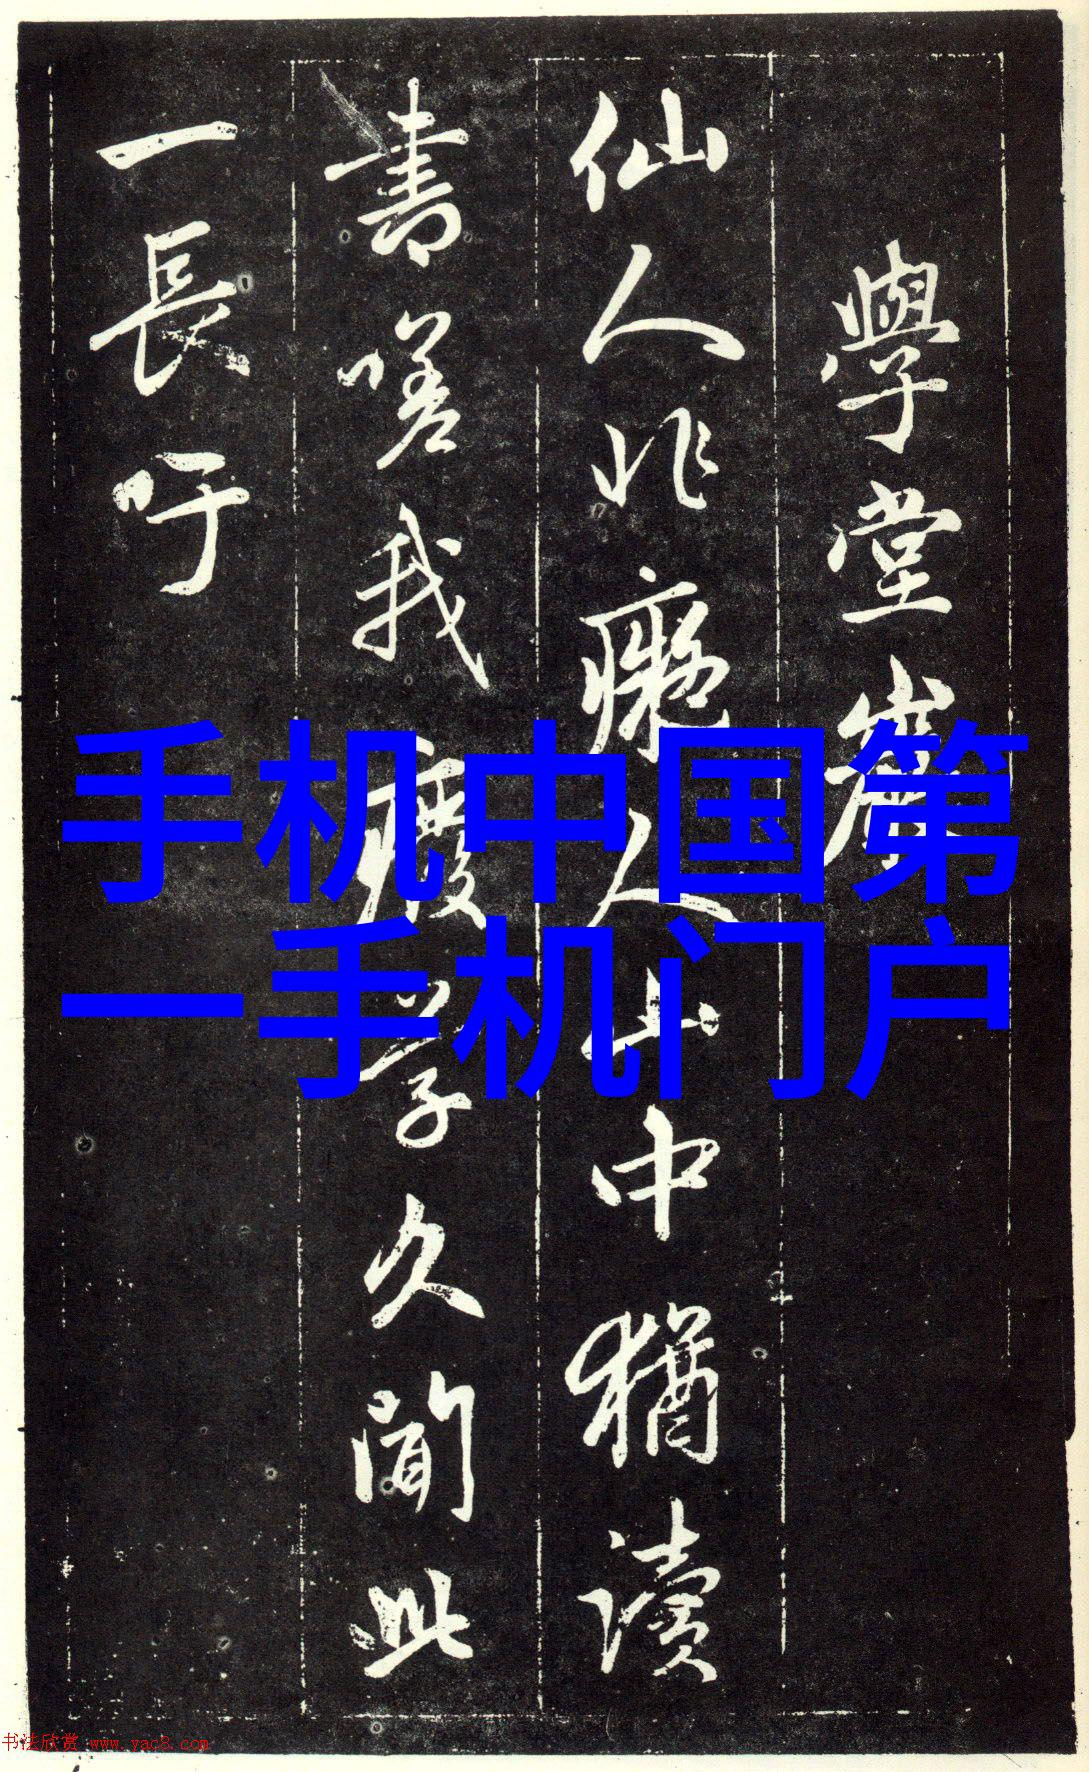 學堂岩
仙人非癡人山中猶讀
書嗟我癈學久聞此
一長吁
手机中国第
一手机门户
书法欣赏 www.yac8.com